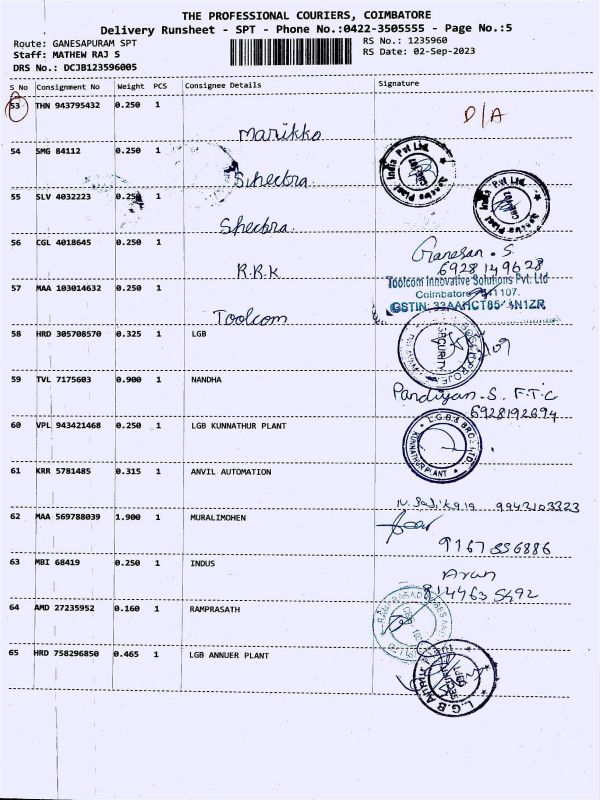 THE PROFESSIONAL COURIERS, COIMBATORE
Delivery Runsheet - SPT - Phone No.:0422-3505555 - Page No.:5
Route: GANESAPURAM SPT
Staff: MATHEW RAJ S
DRS No.: DCJB123596005
RS No.: 1235960
RS Date: 02-Sep-2023
S No Consignment No Weight PCS Consignee Details Signature
53 THN 943795432 0.250 1 D/A
Marikko
54 SMG 84112 0.250 1
India Pvt Ltd.
55 SLV 4032223 0.250 1
Shectra
56 CGL 4018645 0.250 1 Ganesan. S
R.K.K 6928149628
57 MAA 103014632 0.250 1 Toolcom Innovative Solutions Pvt. Ltd
Toolcom
58 HRD 305708570 0.325 1 LGB
SECURITY
59 TVL 7175603 0.900 1 NANDHA
Pandiyan. S. F.T.C
6928192694
60 VPL 943421468 0.250 1 LGB KUNNATHUR PLANT
KUNNATHUR PLANT
61 KRR 5781485 0.315 1 ANVIL AUTOMATION
62 MAA 569788039 1.900 1 MURALIMOHEN
9167556886
63 MBI 68419 0.250 1 INDUS
Arun
64 AMD 27235952 0.160 1 RAMPRASATH
65 HRD 758296850 0.465 1 LGB ANNUER PLANT